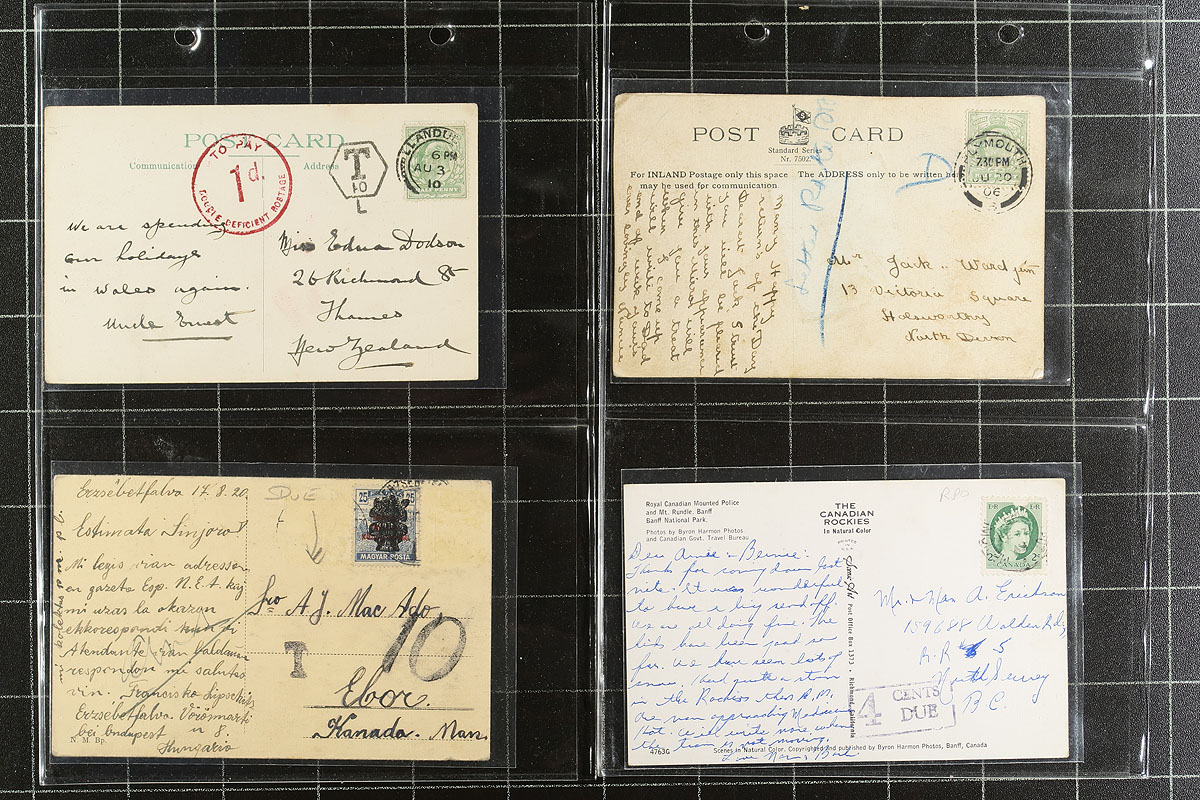 POST CARD
Communication
Address
TO PAY
1d.
DOUBLE DEFICIENT POSTAGE
T
10
L
LLANDU
6 PM
AU 3
10
HALF PENNY
We are spending
our holidays
in Wales again.
Uncle Ernest
Miss Edna Dodson
26 Richmond St
Thames
New Zealand
POST CARD
Standard Series
Nr. 7502.
For INLAND Postage only this space
may be used for communication.
The ADDRESS only to be written he
PLYMOUTH
7.30 PM
JU 20
06
3
Many Happy
returns of the Day
Dearest Jack. I trust
you will be pleased
with your appearance
in this mirror will
give you a treat
when I come up
will write to Dad
end of week
Mr Jack. Ward jun
13 Victoria Square
Holsworthy
North Devon
Erzsébetfalva 17.8.20.
Estimata Sinjoro!
Mi legis vian adresson
en gazeto Esp. N.E.T. kaj
mi uzas la okazon
ekkorespondi kun vi
Atendante vian baldaŭan
respondon mi salutas
vin. Francisko Lipschitz
Erzsébetfalva. Vörösmarti
bei Budapest u 8.
Hungario
N. M. Bp.
mi kolektas p.m. p.i.
DUE
25
25
MAGYAR POSTA
Sro A. J. Mac Ado
T
10
Ebor.
Kanada. Man.
Royal Canadian Mounted Police
and Mt. Rundle, Banff
Banff National Park.
Photos by Byron Harmon Photos
and Canadian Govt. Travel Bureau
THE
CANADIAN
ROCKIES
In Natural Color
RPO
CANADA
Dear Annie & Bernie:
Thanks for coming down last
nite. It was wonderful
to have a big send off.
We are all doing fine. The
kids have been good so
far. We have seen lots of
snow. Had quite a storm
in the Rockies this A.M.
Are now approaching Medicine
Hat. Will write more when
the train is not moving.
Love
Post Office Box 1373 • Richmond, California
Mr. & Mrs. A. Erickson
159688 Walden Rdg
R.R. # 5
North Surrey
B C.
4 CENTS
DUE
4763G
Scenes in Natural Color, Copyrighted and published by Byron Harmon Photos, Banff, Canada